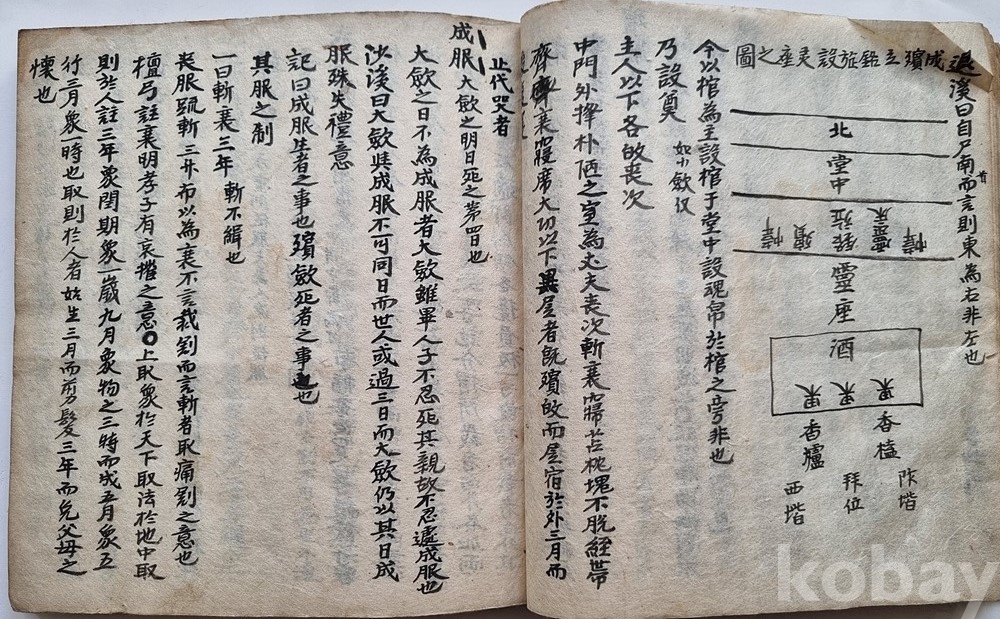 退溪曰自尸南而言則東為右非左也
首
成殯立銘旌設灵座之圖
北
堂中
幃 殯 銘旌 靈床 幃
靈座
酒
果 果 果
香爐 香榼
西堦 拜位 阼堦
今以棺為主設棺于堂中設魂帛於棺之旁非也
乃設奠 如小歛仪
主人以下各故丧次
中門外擇朴陋之室為丈夫丧次斬衰寢苫枕塊不脫絰帶
齊衰寢席大功以下異居者旣殯故而居宿於外三月而
止代哭者
成服 大歛之明日死之第四日也
大歛之日不為成服者大歛雖畢人子不忍死其親故不忍遽成服也
沙溪曰大歛與成服不可同日而世人或過三日而大歛仍以其日成
服殊失禮意
記曰成服生者之事也殯歛死者之事也
其服之制
一曰斬衰三年 斬不緝也
丧服䟽斬三升布以為衰不言裁割而言斬者取痛割之意也
檀弓註衰明孝子有哀摧之意〇上取象於天下取法於地中取
則於人註三年象閏期象一歲九月象物之三時而成五月象五
行三月象一時也取則於人者始生三月而剪髮三年而免父母之
懷也
kobay